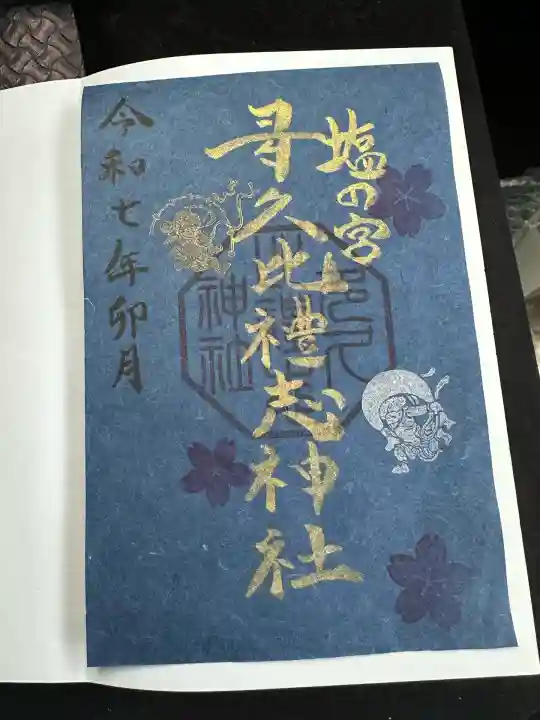 塩の宮
多久比禮志神社
令和七年卯月
神社